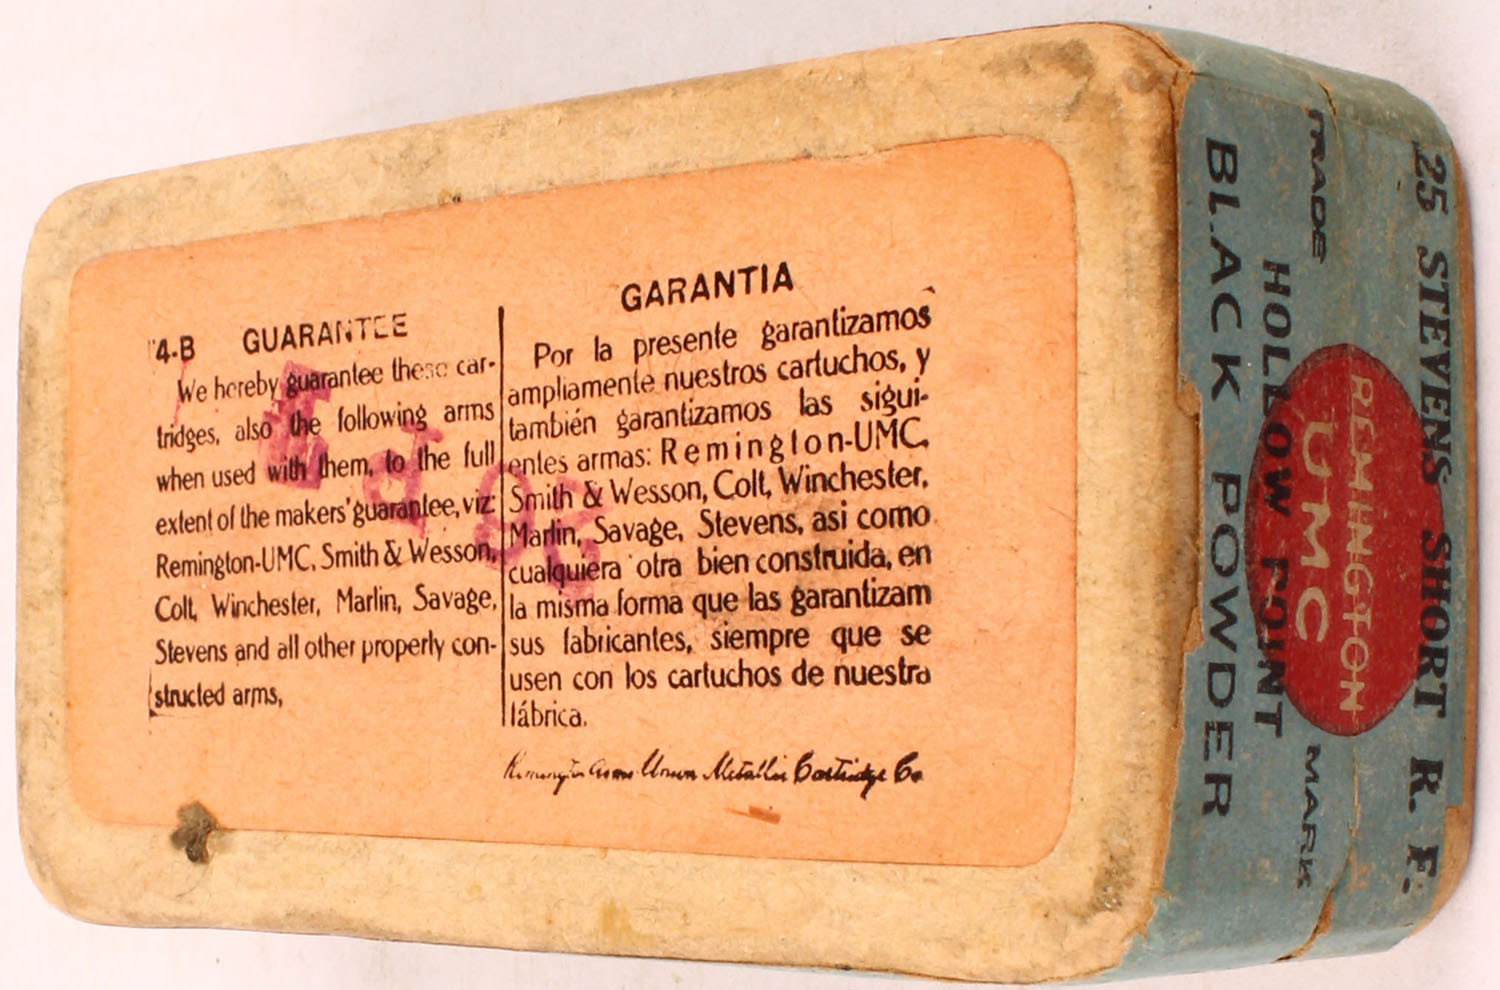 4-B GUARANTEE
We hereby guarantee these car-
tridges, also the following arms
when used with them, to the full
extent of the makers' guarantee, viz:
Remington-UMC, Smith & Wesson,
Colt, Winchester, Marlin, Savage,
Stevens and all other properly con-
structed arms,
GARANTIA
Por la presente garantizamos
ampliamente nuestros cartuchos, y
también garantizamos las sigui-
entes armas: Remington-UMC,
Smith & Wesson, Colt, Winchester,
Marlin, Savage, Stevens, asi como
cualquiera otra bien construida, en
la misma forma que las garantizam
sus fabricantes, siempre que se
usen con los cartuchos de nuestra
fábrica.
Remington Arms Union Metallic Cartridge Co
25 STEVENS SHORT R. F.
TRADE REMINGTON UMC MARK
HOLLOW POINT
BLACK POWDER